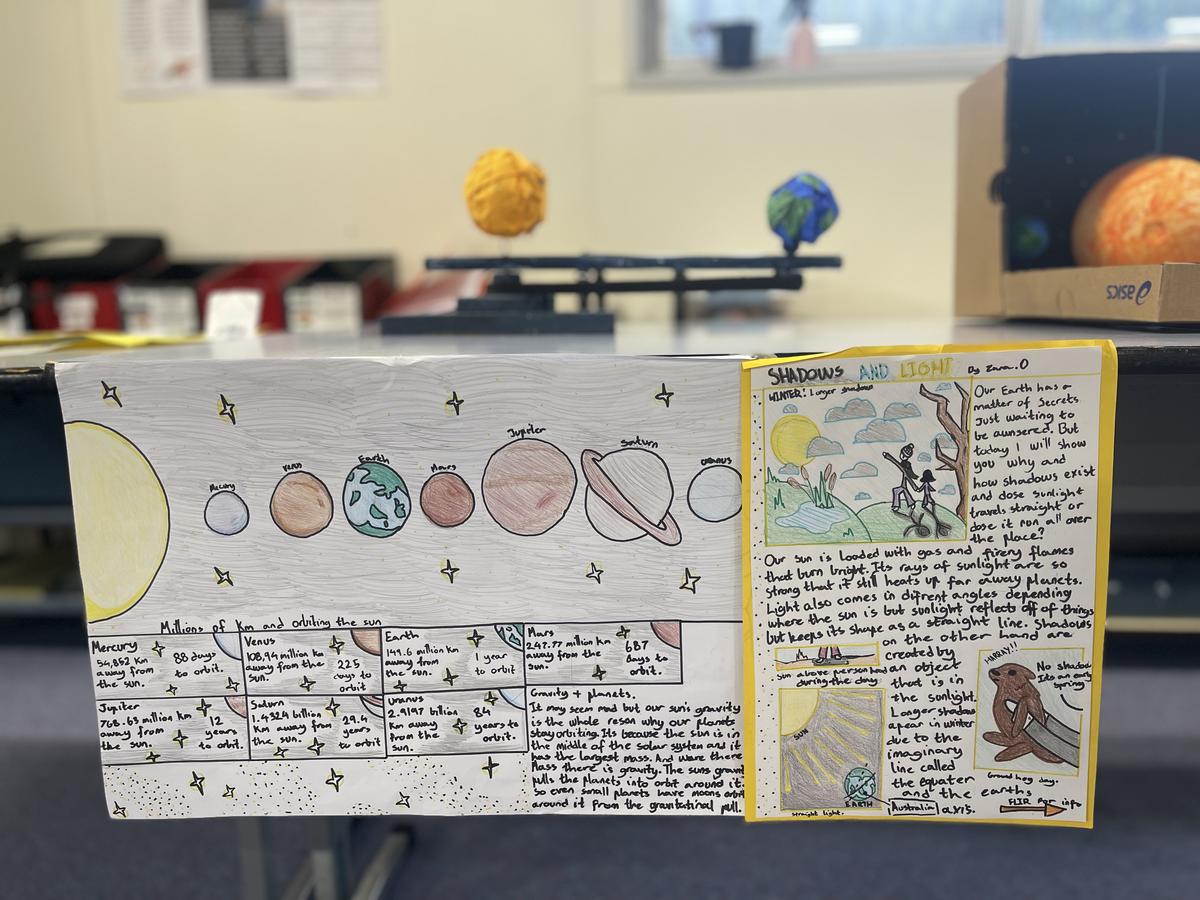 Mercury
Venus
Earth
Mars
Jupiter
Saturn
Uranus
Millions of Km and orbiting the sun
Mercury
54,852 Km
away from
the sun.
88 days
to orbit.
Venus
108,94 million km
away from the
sun.
225
days to
orbit
Earth
149.6 million km
away from
the sun.
1 year
to orbit
Mars
247.77 million km
away from the
sun.
687
days to
orbit.
Jupiter
768.63 million Km
away from
the sun.
12
years
to orbit.
Saturn
1.4324 billion
Km away from
the sun.
29.4
years
to orbit
Uranus
2.9197 billion
Km away
from the
sun.
84
years to
orbit.
Gravity + planets.
It may seem mad but our suns gravity
is the whole reson why our planets
stay orbiting. Its because the sun is in
the middle of the solar system and it
has the largest mass. And were there
Mass there is gravity. The suns
pulls the planets into orbit around it.
So even small planets have moons
around it from the gravitational pull.
SHADOWS AND LIGHT
By Zara.O
WINTER: Longer shadows
Our Earth has a
matter of Secrets
Just waiting to
be aunsered. But
today I will show
you why and
how shadows exist
and dose sunlight
travels straight or
dose it run all over
the place?
Our sun is loaded with gas and firery flames
that burn bright. Its rays of sunlight are so
strong that it still heats up far away planets.
Light also comes in difrent angles depending
where the sun is but sunlight reflects off of things
but keeps its shape as a straight line. Shadows
on the other hand are
created by
an object
that is in
the sunlight.
Longer shadows
apear in winter
due to the
imaginary
line called
the equater
and the earths
axis.
Sun above person
during the day.
SUN
EARTH
straight light.
Australia
HURRAY!!
No shadow
Its an early
spring
Ground hog day.
FLIP for info
asics